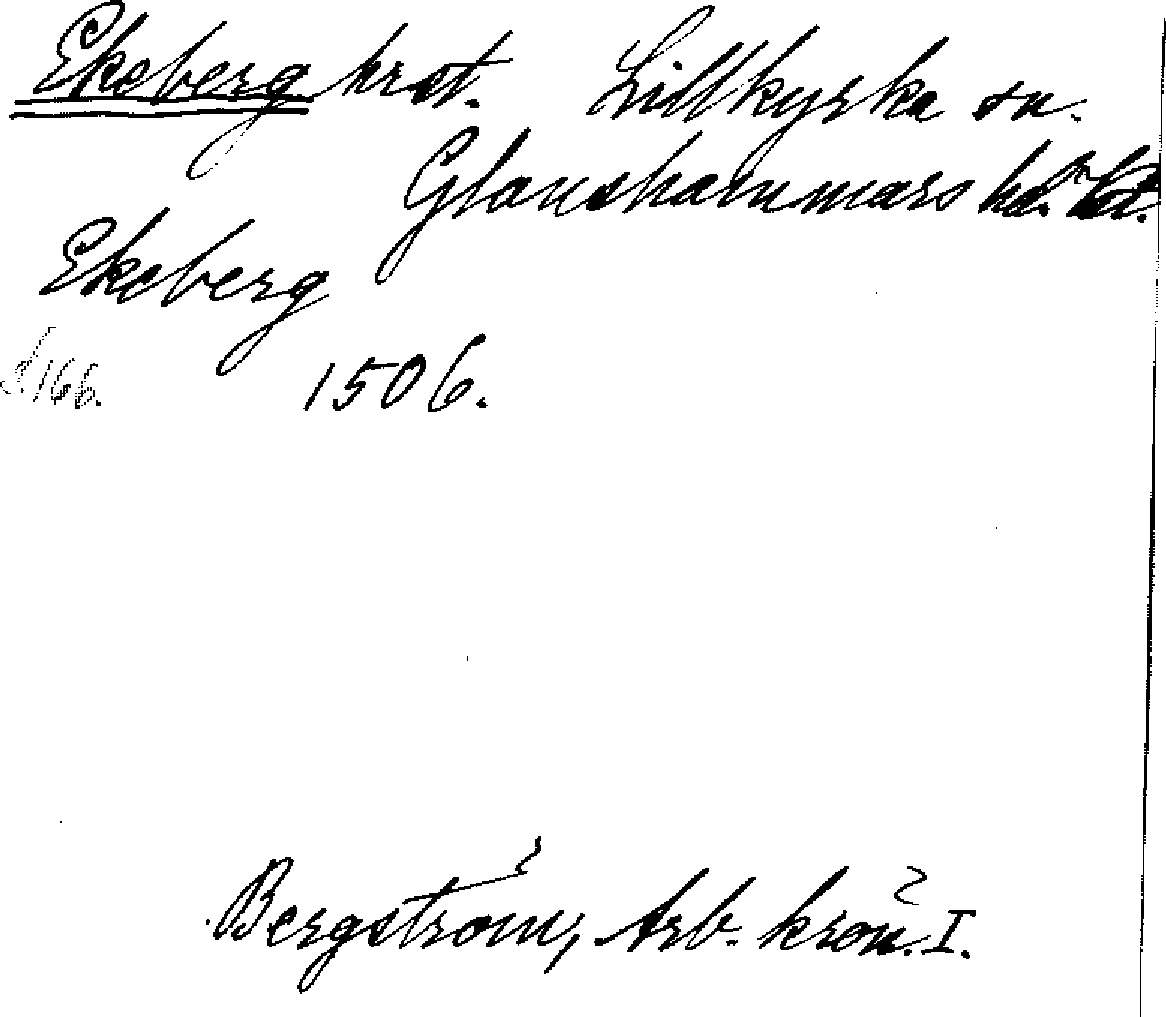 Ekeberg hrst. Lillkyrka sn.
Glanshammars hd.
Ekeberg
S. 166. 1506.
Bergström, Arb. krön. I.